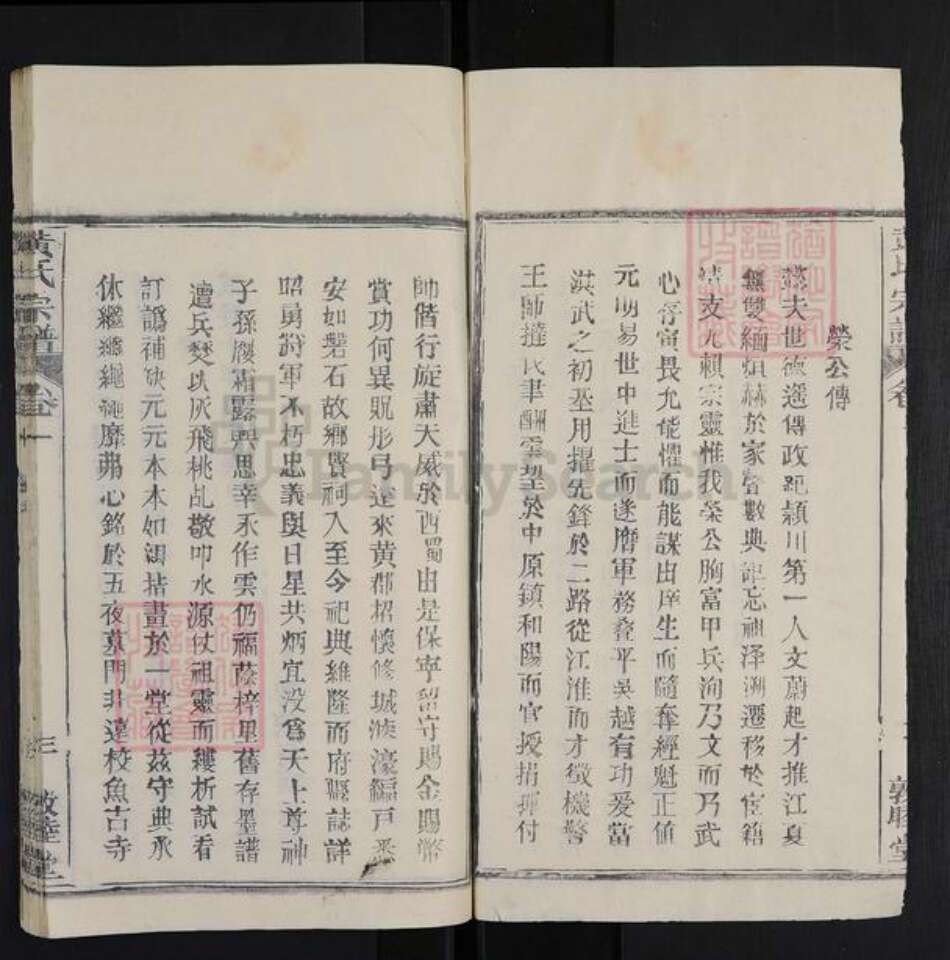 榮公傳
夫世德遥傳政起頴川第一人文蔚起才推江夏
無雙緬烜赫於家聲數典詎忘祖澤溯遷移於宦籍
支尤賴宗靈惟我榮公胸富甲兵洵乃文而乃武
心存寅畏允能懼而能謀由庠生而隨奪經魁正值
元明易世中進士而遂膺軍務叠平吳越有功爰當
洪武之初基用擢先鋒於二路從江淮而才徵機警
王師撻民聿酬雲望於中原鎮和陽而官授指揮付
帥偕行旋肅天威於西蜀由是保寧留守賜金賜幣
賞功何異貺彤弓遠來黄郡招懷修城浚濠編戸悉
安如磐石故鄉賢祠入至今祀典維隆而府縣誌詳
昭勇將軍不朽忠義與日星共炳宜没爲天上尊神
子孫履霜露興思幸承作雲仍福蔭梓里舊存墨譜
遭兵燹以灰飛桃乩敬叩水源仗祖靈而縷析試看
訂譌補缺元元本本如淵指畫於一堂從兹守典承
休繼繼繩繩靡弗心銘於五夜慕門非遠校魚古寺
黃氏宗譜
卷一
三
敦睦堂